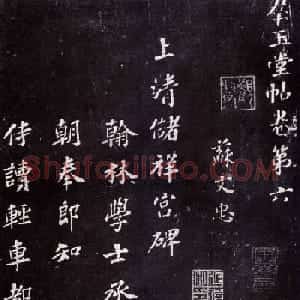 羣玉堂帖卷第六
蘇文忠
上清儲祥宮碑
翰林學士承
朝奉郎知
侍讀輕車都